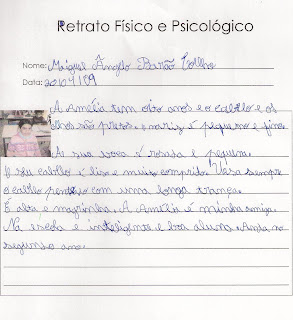 Retrato Físico e Psicológico
Nome: Miguel Ângelo Barão Coelho
Data: 20/04/09
A Amélia tem oito anos e o cabelo e os
olhos são pretos. o nariz é pequeno e fino.
A sua boca é rosada e pequena.
O seu cabelo é liso e muito comprido. Usa sempre
o cabelo com uma longa trança.
É alta e magrinha. A Amélia é minha amiga.
Na escola é inteligente e boa aluna. Anda no
segundo ano.